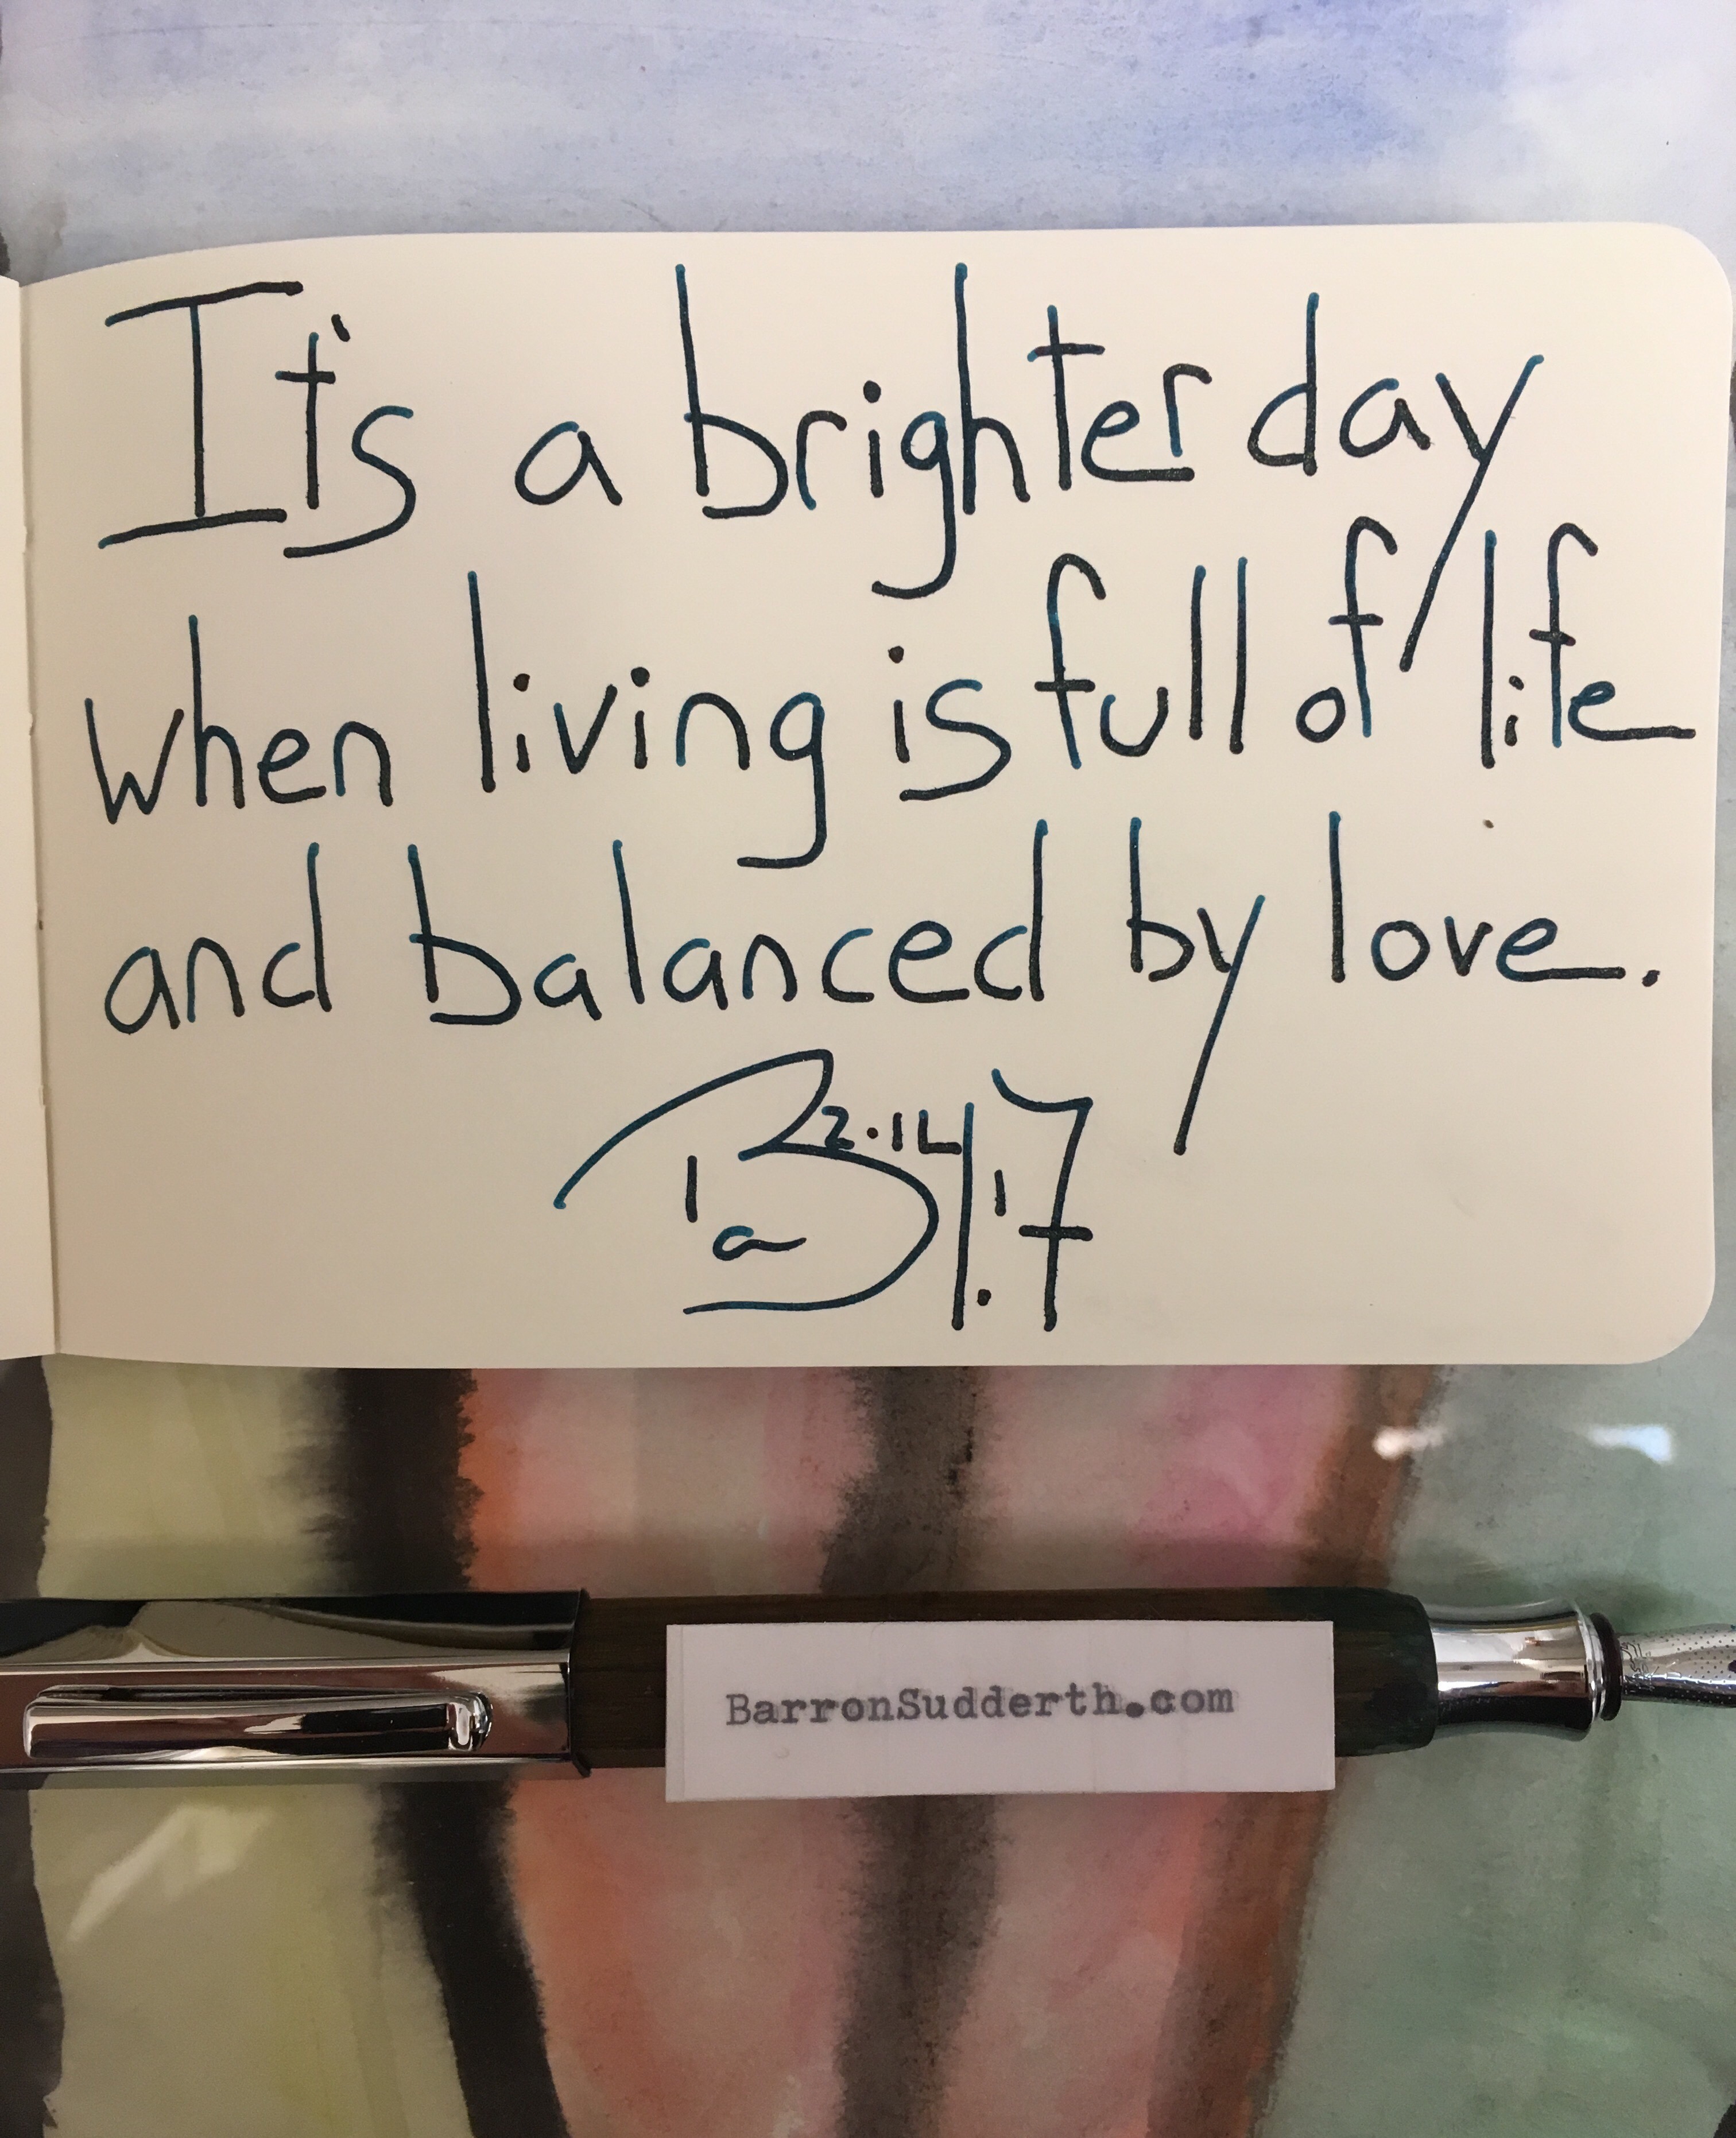 It's a brighter day
when living is full of life
and balanced by love.
2.14.17
BarronSudderth.com